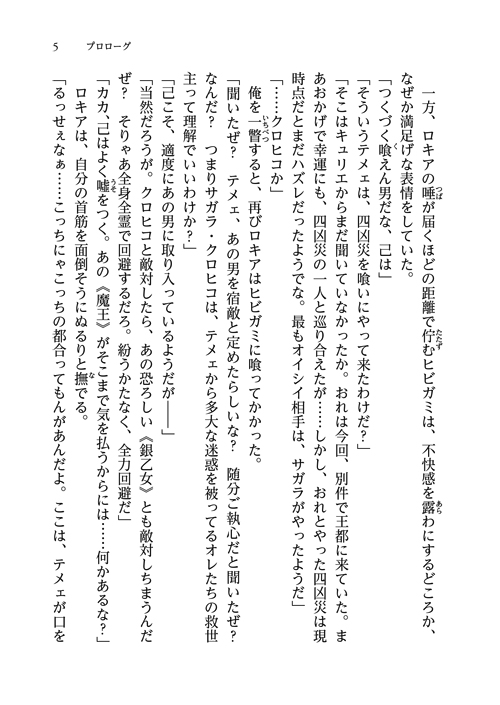 5　プロローグ
　一方、ロキアの唾が届くほどの距離で佇むヒビガミは、不快感を露わにするどころか、
なぜか満足げな表情をしていた。
「つくづく喰えん男だな、己は」
「そういうテメェは、四凶災を喰いにやって来たわけだ？」
「そこはキュリエからまだ聞いていなかったか。おれは今回、別件で王都に来ていた。ま
あおかげで幸運にも、四凶災の一人と巡り合えたが……しかし、おれとやった四凶災は現
時点だとまだハズレだったようでな。最もオイシイ相手は、サガラがやったようだ」
「……クロヒコか」
　俺を一瞥すると、再びロキアはヒビガミに喰ってかかった。
「聞いたぜ？　テメェ、あの男を宿敵と定めたらしいな？　随分ご執心だと聞いたぜ？
なんだ？　つまりサガラ・クロヒコは、テメェから多大な迷惑を被ってるオレたちの救世
主って理解でいいわけか？」
「己こそ、適度にあの男に取り入っているようだが――」
「当然だろうが。クロヒコと敵対したら、あの恐ろしい《銀乙女》とも敵対しちまうんだ
ぜ？　そりゃあ全身全霊で回避するだろ。紛うかたなく、全力回避だ」
「カカ、己はよく嘘をつく。あの《魔王》がそこまで気を払うからには……何かあるな？」
　ロキアは、自分の首筋を面倒そうにぬるりと撫でる。
「るっせぇなぁ……こっちにゃこっちの都合ってもんがあんだよ。ここは、テメェが口を